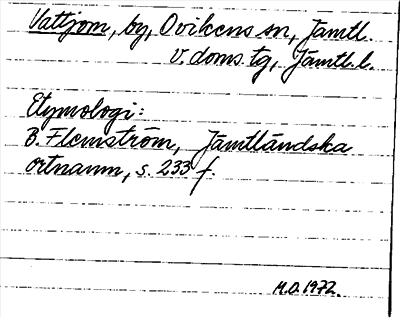 Vattjom, by, Ovikens sn, Jämtl.
v. doms. tg, Jämtl. l.
Etymologi:
B. Flemström, Jämtländska
ortnamn, s. 233 f.
M.O. 1972.